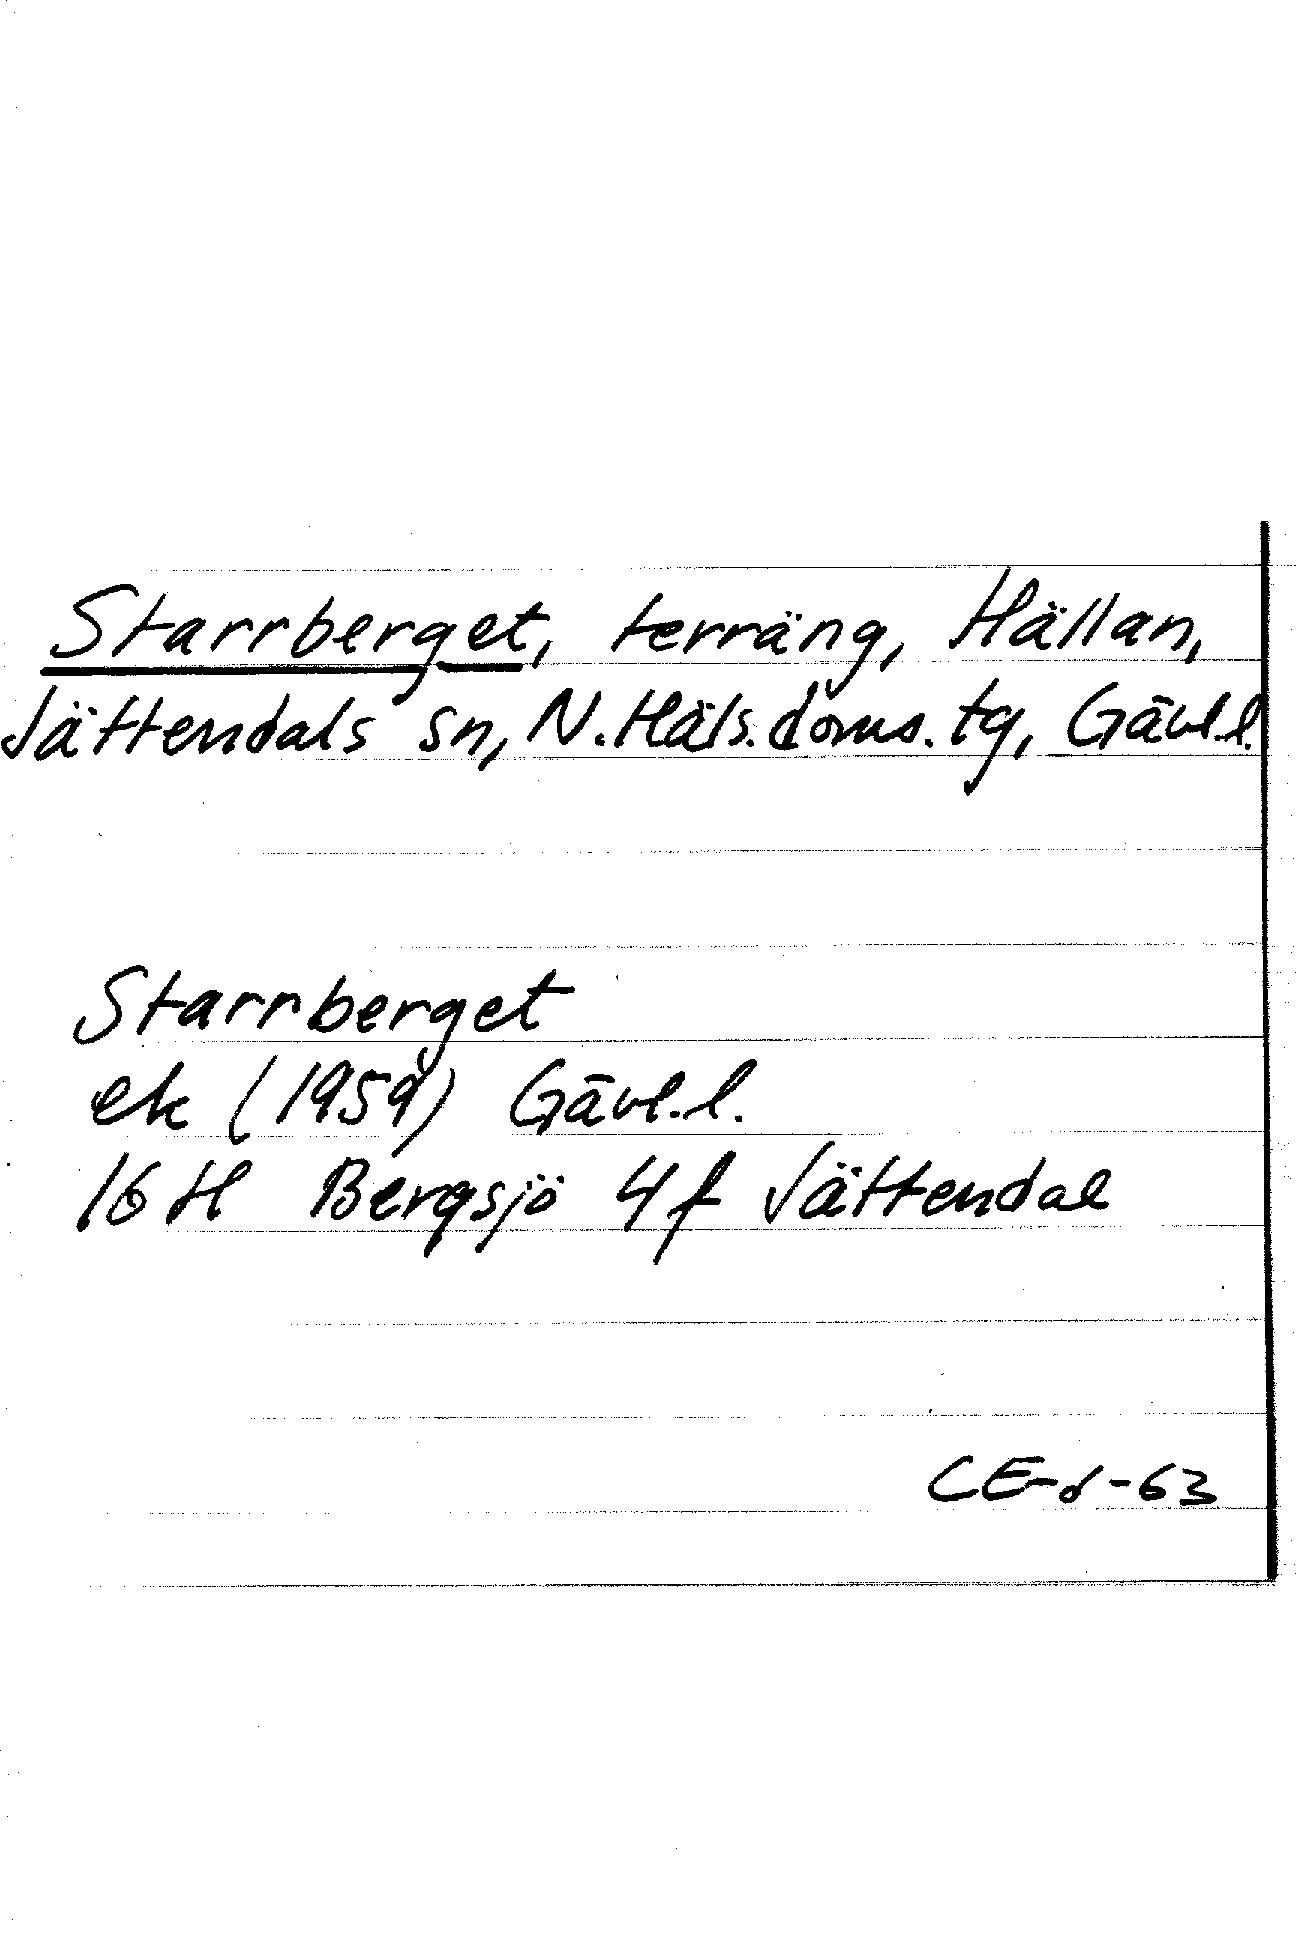 Starrberget, terräng, Hällan,
Jättendals sn, N. Häls. doms. tg, Gävl.l.
Starrberget
ek (1959) Gävl.l.
16 H Bergsjö 4 f Jättendal
CE-d-63